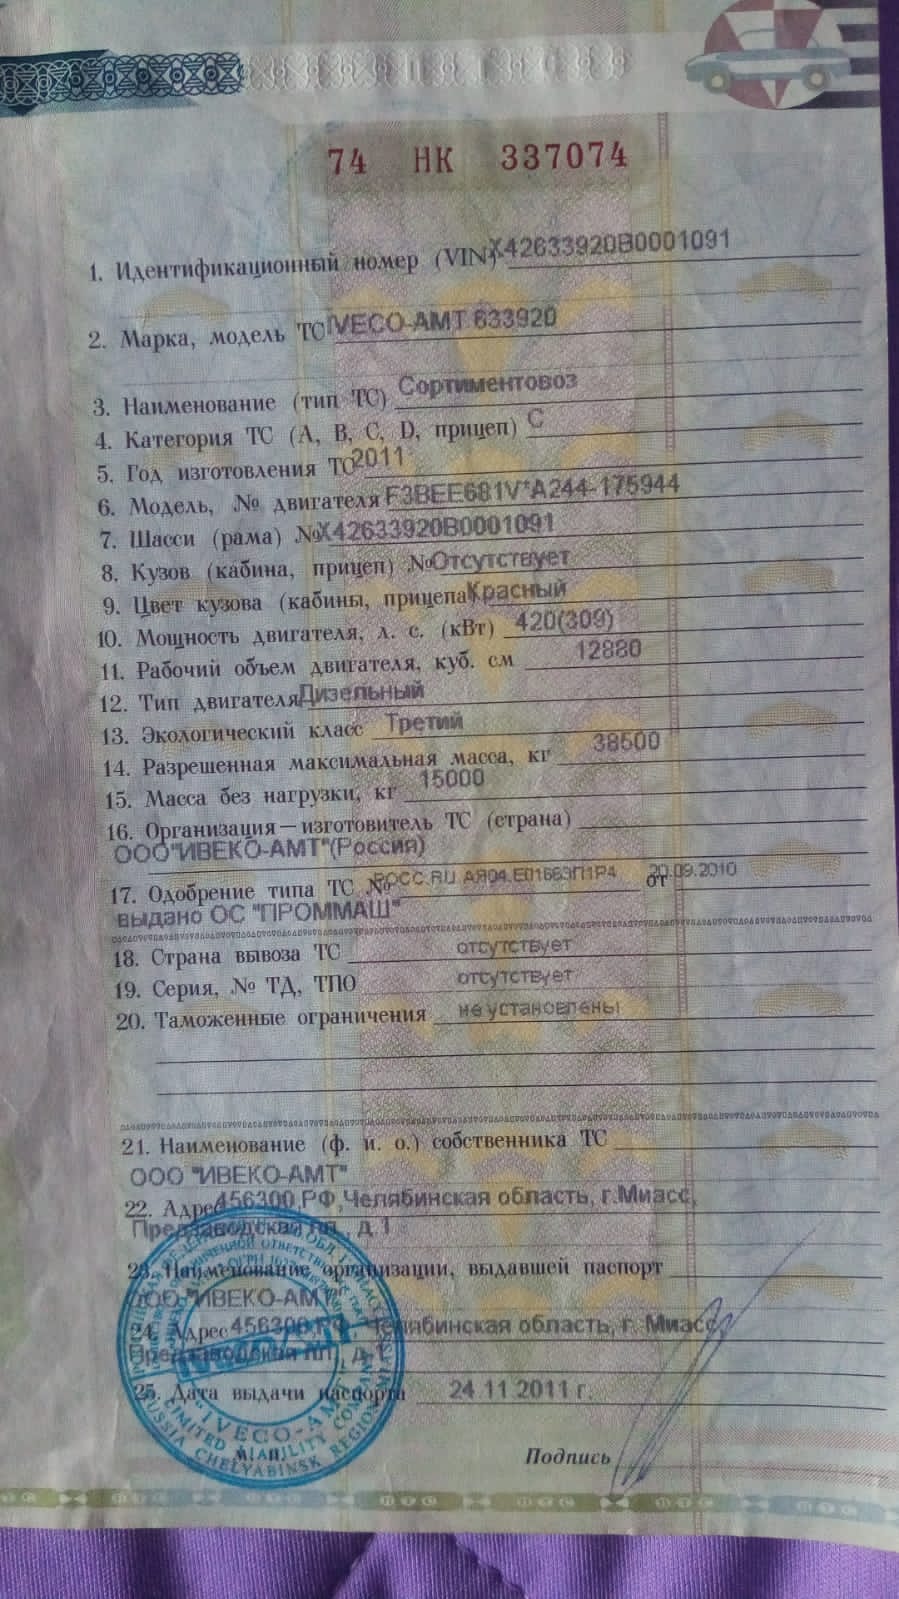 74 НК 337074
1. Идентификационный номер (VIN) X42633920B0001091
2. Марка, модель ТС IVECO-AMT 633920
3. Наименование (тип ТС) Сортиментовоз
4. Категория ТС (А, В, С, D, прицеп) С
5. Год изготовления ТС 2011
6. Модель, № двигателя F3BEE681V*A244-175944
7. Шасси (рама) № X42633920B0001091
8. Кузов (кабина, прицеп) № Отсутствует
9. Цвет кузова (кабины, прицепа) Красный
10. Мощность двигателя, л. с. (кВт) 420(309)
11. Рабочий объем двигателя, куб. см 12880
12. Тип двигателя Дизельный
13. Экологический класс Третий
14. Разрешенная максимальная масса, кг 38500
15. Масса без нагрузки, кг 15000
16. Организация—изготовитель ТС (страна)
ООО"ИВЕКО-АМТ"(Россия)
17. Одобрение типа ТС № РОСС.RU.АЯ04.Е01663П1Р4 от 20.09.2010
выдано ОС "ПРОММАШ"
18. Страна вывоза ТС отсутствует
19. Серия, № ТД, ТПО отсутствует
20. Таможенные ограничения не установлены
21. Наименование (ф. и. о.) собственника ТС
ООО "ИВЕКО-АМТ"
22. Адрес 456300,РФ,Челябинская область, г.Миасс,
Предзаводская пл., д.1
23. Наименование организации, выдавшей паспорт
ООО "ИВЕКО-АМТ"
24. Адрес 456300,РФ, Челябинская область, г. Миасс,
Предзаводская пл., д.1
25. Дата выдачи паспорта 24.11.2011 г.
"IVECO-AMT"
LIMITED LIABILITY COMPANY
RUSSIA CHELYABINSK REGION MIASS
М.П.
Подпись